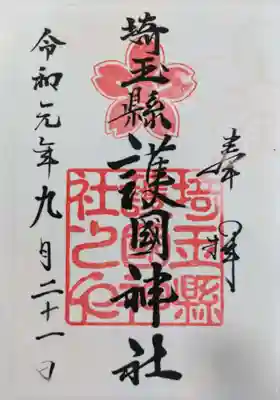 奉拝
埼玉縣護國神社
埼玉縣
護國神
社之印
令和元年九月二十一日